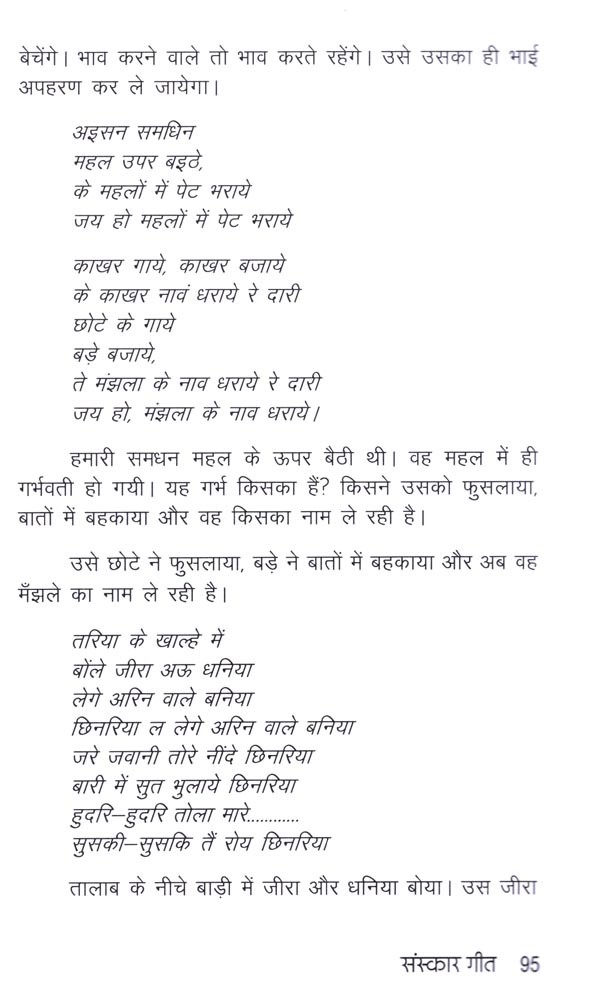 बेचेंगे। भाव करने वाले तो भाव करते रहेंगे। उसे उसका ही भाई
अपहरण कर ले जायेगा।
अइसन समधिन
महल उपर बइठे,
के महलों में पेट भराये
जय हो महलों में पेट भराये
काखर गाये, काखर बजाये
के काखर नावं धराये रे दारी
छोटे के गाये
बड़े बजाये,
ते मंझला के नाव धराये रे दारी
जय हो, मंझला के नाव धराये।
हमारी समधन महल के ऊपर बैठी थी। वह महल में ही
गर्भवती हो गयी। यह गर्भ किसका हैं? किसने उसको फुसलाया,
बातों में बहकाया और वह किसका नाम ले रही है।
उसे छोटे ने फुसलाया, बड़े ने बातों में बहकाया और अब वह
मँझले का नाम ले रही है।
तरिया के खाल्हे में
बोंले जीरा अऊ धनिया
लेगे अरिन वाले बनिया
छिनरिया ल लेगे अरिन वाले बनिया
जरे जवानी तोरे नींदे छिनरिया
बारी में सुत भुलाये छिनरिया
हुदरि–हुदरि तोला मारे............
सुसकी–सुसकि तैं रोय छिनरिया
तालाब के नीचे बाड़ी में जीरा और धनिया बोया। उस जीरा
संस्कार गीत 95